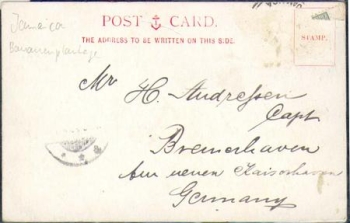 Jamaica
Bananenplantage
POST ⚓ CARD.
THE ADDRESS TO BE WRITTEN ON THIS SIDE.
STAMP.
Mr H. Andressen
Capt
Bremerhaven
Am neuen Kaiserhaven
Germany